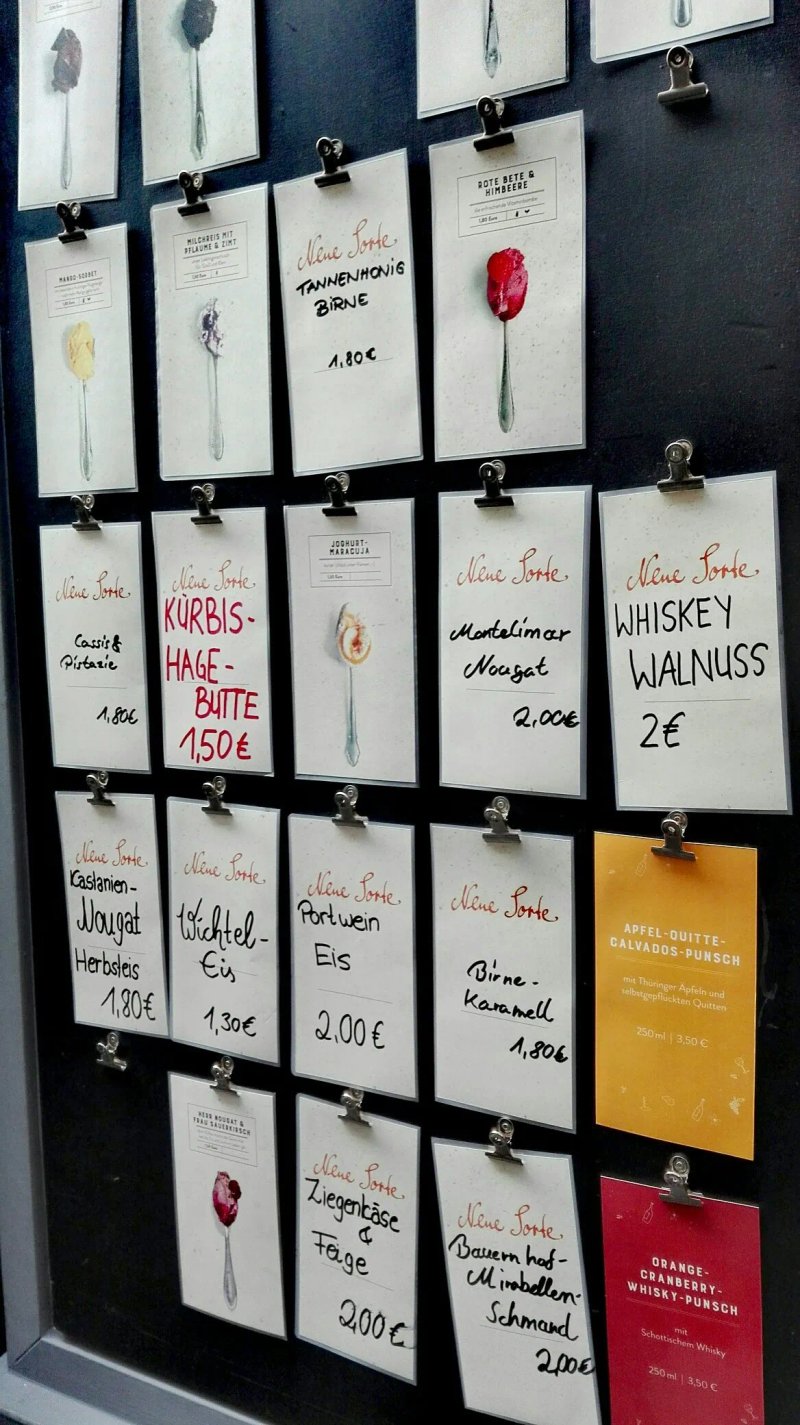 MANGO-SORBET
MILCHREIS MIT
PFLAUME & ZIMT
Neue Sorte
TANNENHONIG
BIRNE
1,80€
ROTE BETE &
HIMBEERE
1,80 Euro
Neue Sorte
Cassis &
Pistazie
1,80€
Neue Sorte
KÜRBIS-
HAGE-
BUTTE
1,50€
JOGHURT-
MARACUJA
Neue Sorte
Montelimar
Nougat
2,00€
Neue Sorte
WHISKEY
WALNUSS
2€
Neue Sorte
Kastanien-
Nougat
Herbsteis
1,80€
Neue Sorte
Wichtel-
Eis
1,30€
Neue Sorte
Portwein
Eis
2,00€
Neue Sorte
Birne-
Karamell
1,80€
APFEL-QUITTE-
CALVADOS-PUNSCH
mit Thüringer Äpfeln und
selbstgepflückten Quitten
250 ml | 3,50 €
HERR NOUGAT &
FRAU SAUERKIRSCH
Neue Sorte
Ziegenkäse
&
Feige
2,00€
Neue Sorte
Bauernhof-
Mirabellen-
Schmand
2,00€
ORANGE-
CRANBERRY-
WHISKY-PUNSCH
mit
Schottischem Whisky
250 ml | 3,50 €